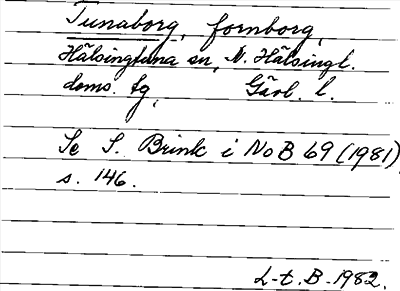 Tunaborg, fornborg,
Hälsingtuna sn, N. Hälsingl.
doms. tg, Gävl. l.
Se S. Brink i NoB 69 (1981)
s. 146.
L-t. B. 1982.